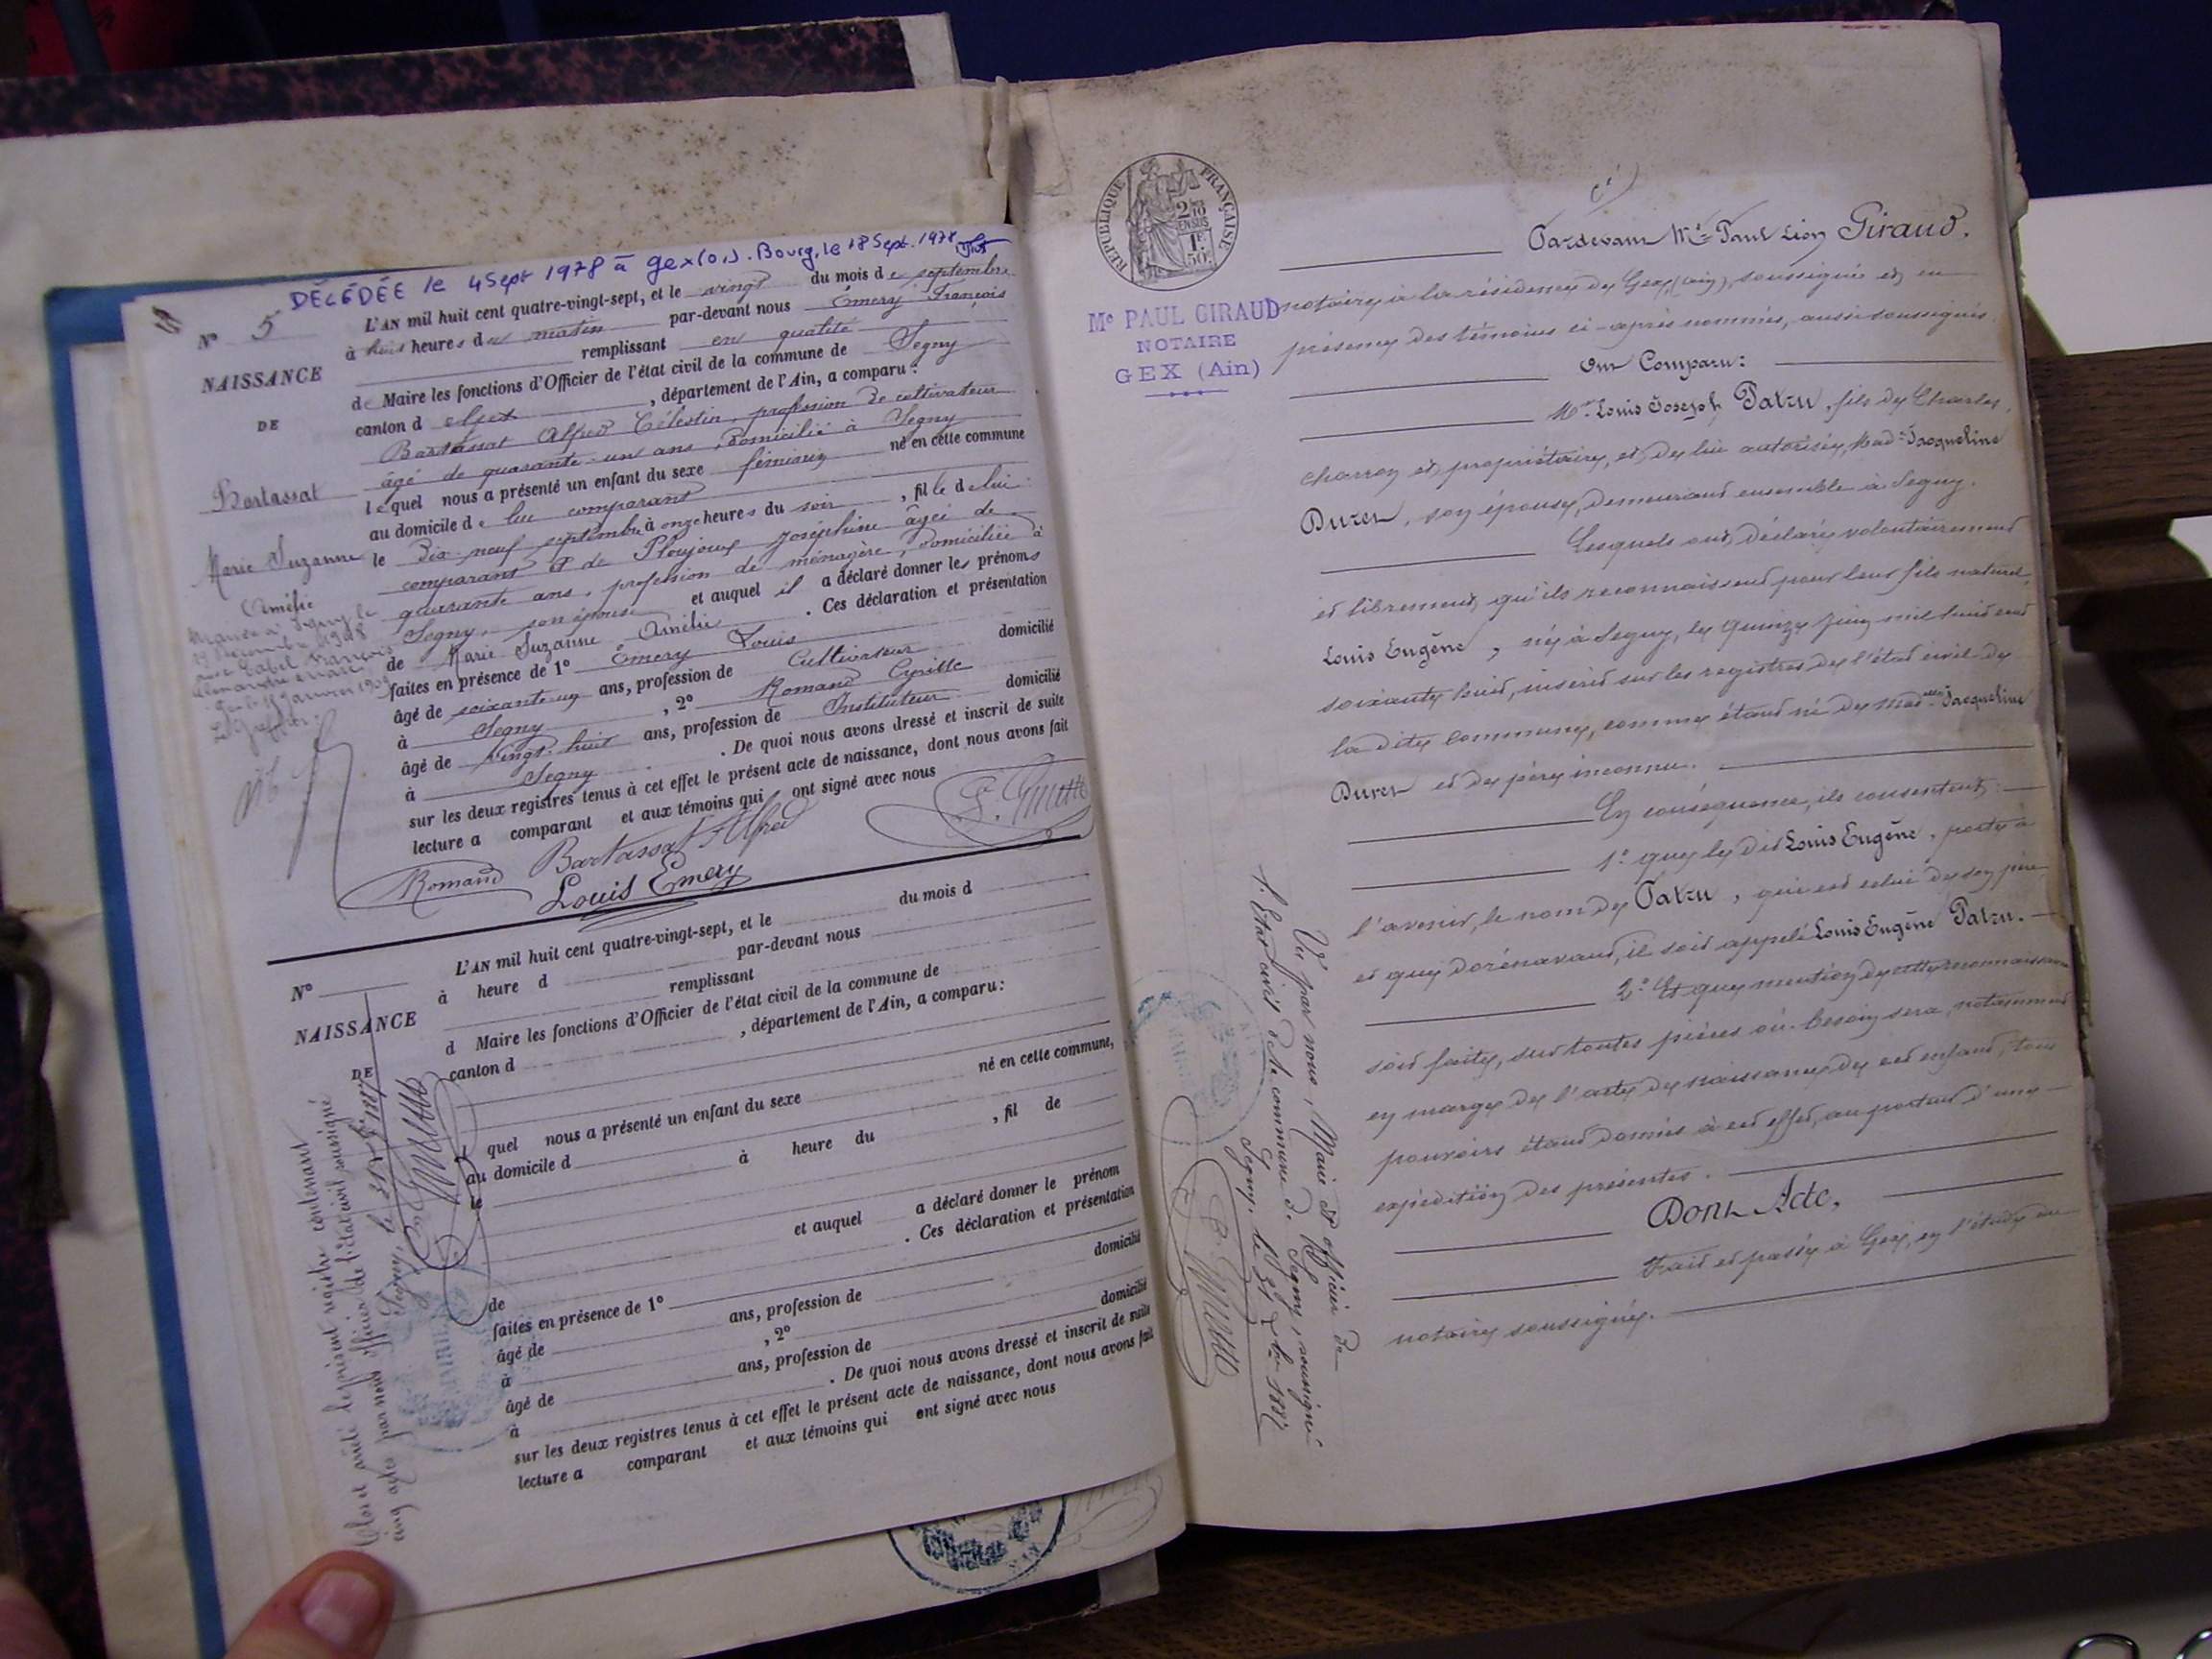 DÉCÉDÉE le 4 Sept 1978 à gex (01). Bourg, le 18 Sept. 1978
N° 5
NAISSANCE
DE
Bartassat
Marie Suzanne
Amélie
L'AN mil huit cent quatre-vingt-sept, et le vingt du mois de septembre
à huit heures du matin par-devant nous Émery François
remplissant en qualité
de Maire les fonctions d'Officier de l'état civil de la commune de Segny
canton de Gex, département de l'Ain, a comparu :
Bartassat Alfred Célestin, profession de cultivateur
âgé de quarante-un ans, domicilié à Segny
lequel nous a présenté un enfant du sexe féminin né en cette commune
au domicile de lui comparant
le dix-neuf septembre à onze heures du soir, fille de lui
comparant et de Ploujoux Joséphine âgée de
quarante ans, profession de ménagère, domiciliée à
Segny, son épouse et auquel il a déclaré donner les prénoms
de Marie Suzanne Amélie. Ces déclaration et présentation
faites en présence de 1° Émery Louis domicilié
âgé de soixante-un ans, profession de Cultivateur
à Segny, 2° Romand Cyrille domicilié
âgé de vingt-huit ans, profession de Instituteur
à Segny. De quoi nous avons dressé et inscrit de suite
sur les deux registres tenus à cet effet le présent acte de naissance, dont nous avons fait
lecture a comparant et aux témoins qui ont signé avec nous
Romand Bartassat Alfred
Louis Emery
N°
NAISSANCE
DE
L'AN mil huit cent quatre-vingt-sept, et le du mois d
à heure d par-devant nous
remplissant
d Maire les fonctions d'Officier de l'état civil de la commune de
canton d , département de l'Ain, a comparu :
quel nous a présenté un enfant du sexe né en cette commune,
au domicile d
le à heure du , fil de
et auquel a déclaré donner le prénom
de . Ces déclaration et présentation
faites en présence de 1° domicilié
âgé de ans, profession de
à , 2° domicilié
âgé de ans, profession de
à . De quoi nous avons dressé et inscrit de suite
sur les deux registres tenus à cet effet le présent acte de naissance, dont nous avons fait
lecture a comparant et aux témoins qui ont signé avec nous
Clos et arrêté le présent registre contenant
cinq actes par nous officier de l'état civil soussigné
Segny, le 31
RÉPUBLIQUE FRANÇAISE
2/10 EN SUS
1F 50c
Me PAUL GIRAUD
NOTAIRE
GEX (Ain)
Pardevant Me Paul Léon Giraud,
notaire à la résidence de Gex, (ain), soussigné et en
présence des témoins ci-après nommés, aussi soussignés.
Ont Comparu :
Mr Louis Joseph Patru, fils de Charles,
charron et propriétaire, et, de lui autorisée, Made Jacqueline
Duret, son épouse, demeurant ensemble à Segny.
Lesquels ont déclaré volontairement
et librement, qu'ils reconnaissent pour leur fils naturel,
Louis Eugène, né à Segny, le quinze juin mil huit cent
soixante huit, inscrit sur les registres de l'état civil de
la dite commune, comme étant né de Madelle Jacqueline
Duret et de père inconnu.
En conséquence, ils consentent :
1° que le dit Louis Eugène, porte à
l'avenir, le nom de Patru, qui est celui de son père
et que dorénavant, il soit appelé Louis Eugène Patru.
2° Et que mention de cette reconnaissance
soit faite, sur toutes pièces où besoin sera, notamment
en marge de l'acte de naissance de cet enfant, tous
pouvoirs étant donnés à cet effet, au porteur d'une
expédition des présentes.
Dont Acte,
Fait et passé à Gex, en l'étude du
notaire soussigné.
Vu par nous, Maire et officier de
l'État civil de la commune de Segny, soussigné
Segny, le 31 Xbre 1887